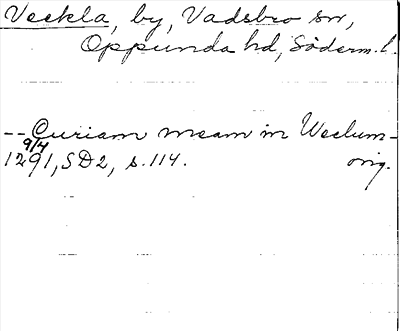 Veckla, by, Vadsbro sn,
Oppunda hd, Söderm. l.
-- Curiam meam in Weclum -
9/4
1291, SD2, s. 114. orig.